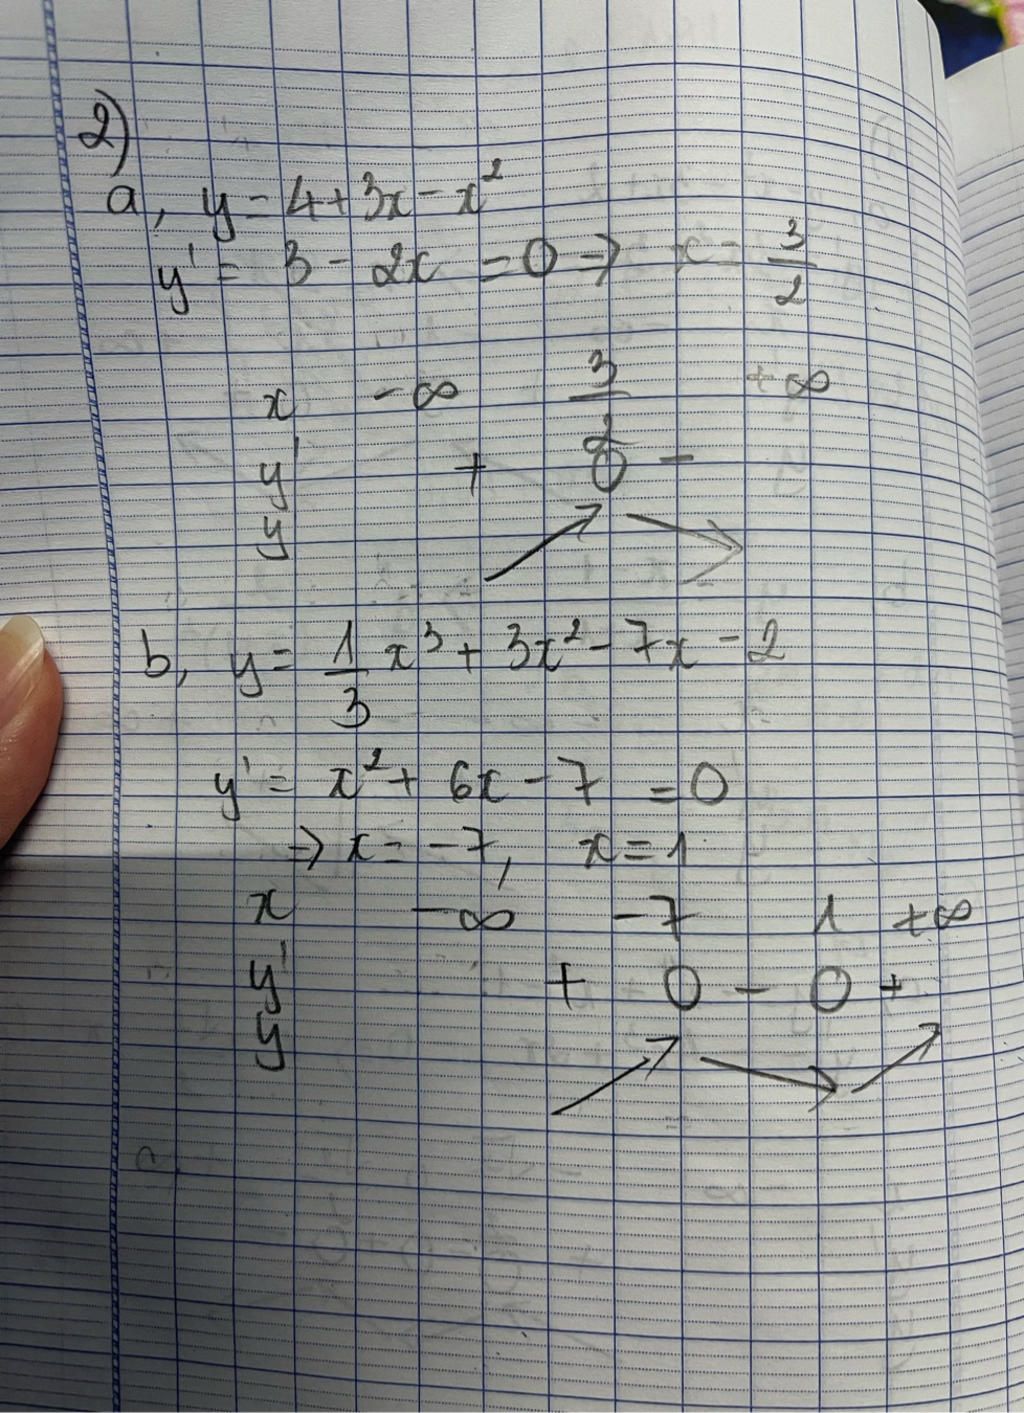 2)
a, y = 4 + 3x - x²
y' = 3 - 2x = 0 => x = 3/2
x -∞ 3/2 +∞
y' + 0 -
y ↗ ↘
b, y = 1/3 x³ + 3x² - 7x - 2
y' = x² + 6x - 7 = 0
=> x = -7, x = 1
x -∞ -7 1 +∞
y' + 0 - 0 +
y ↗ ↘ ↗